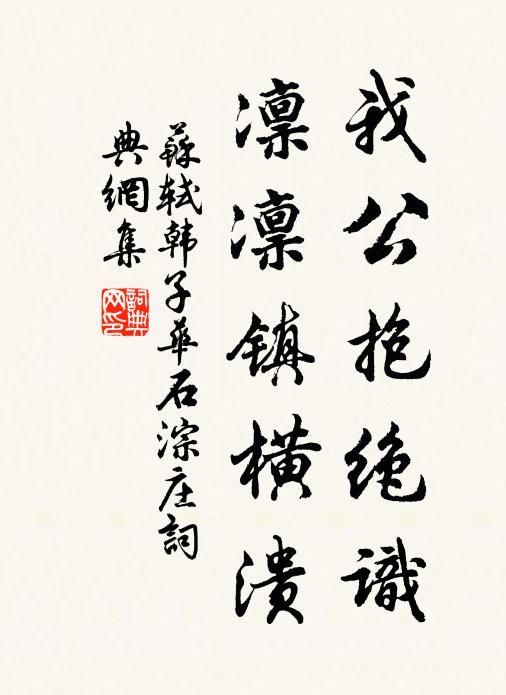 我公抱绝識
凛凛镇横潰
蘇轼韩子華石淙庄詞
典網集
詞典网印